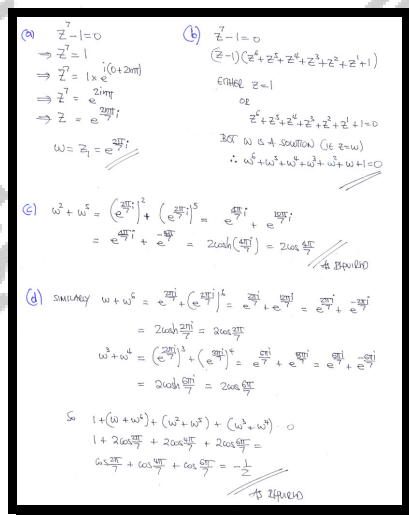 (a) z⁷-1=0
⇒ z⁷=1
⇒ z⁷ = 1×e^{i(0+2nπ)}
⇒ z⁷ = e^{2inπ}
⇒ z = e^{\frac{2nπ}{7}i}
ω = z₁ = e^{\frac{2π}{7}i}
(b) z⁷-1=0
(z-1)(z⁶+z⁵+z⁴+z³+z²+z¹+1)
EITHER z=1
OR
z⁶+z⁵+z⁴+z³+z²+z¹+1=0
BUT ω IS A SOLUTION (IE z=ω)
∴ ω⁶+ω⁵+ω⁴+ω³+ω²+ω+1=0
(c) ω²+ω⁵ = (e^{\frac{2π}{7}i})² + (e^{\frac{2π}{7}i})⁵ = e^{\frac{4π}{7}i} + e^{\frac{10π}{7}i}
= e^{\frac{4π}{7}i} + e^{-\frac{4π}{7}i} = 2cosh(\frac{4π}{7}i) = 2cos\frac{4π}{7}
AS REQUIRED
(d) SIMILARLY ω+ω⁶ = e^{\frac{2π}{7}i} + (e^{\frac{2π}{7}i})⁶ = e^{\frac{2πi}{7}} + e^{\frac{12πi}{7}} = e^{\frac{2πi}{7}} + e^{-\frac{2πi}{7}}
= 2cosh\frac{2πi}{7} = 2cos\frac{2π}{7}
ω³+ω⁴ = (e^{\frac{2πi}{7}})³ + (e^{\frac{2πi}{7}})⁴ = e^{\frac{6πi}{7}} + e^{\frac{8πi}{7}} = e^{\frac{6πi}{7}} + e^{-\frac{6πi}{7}}
= 2cosh\frac{6πi}{7} = 2cos\frac{6π}{7}
So 1+(ω+ω⁶)+(ω²+ω⁵)+(ω³+ω⁴) 0
1+2cos\frac{2π}{7}+2cos\frac{4π}{7}+2cos\frac{6π}{7} =
cos\frac{2π}{7}+cos\frac{4π}{7}+cos\frac{6π}{7} = -\frac{1}{2}
AS REQUIRED